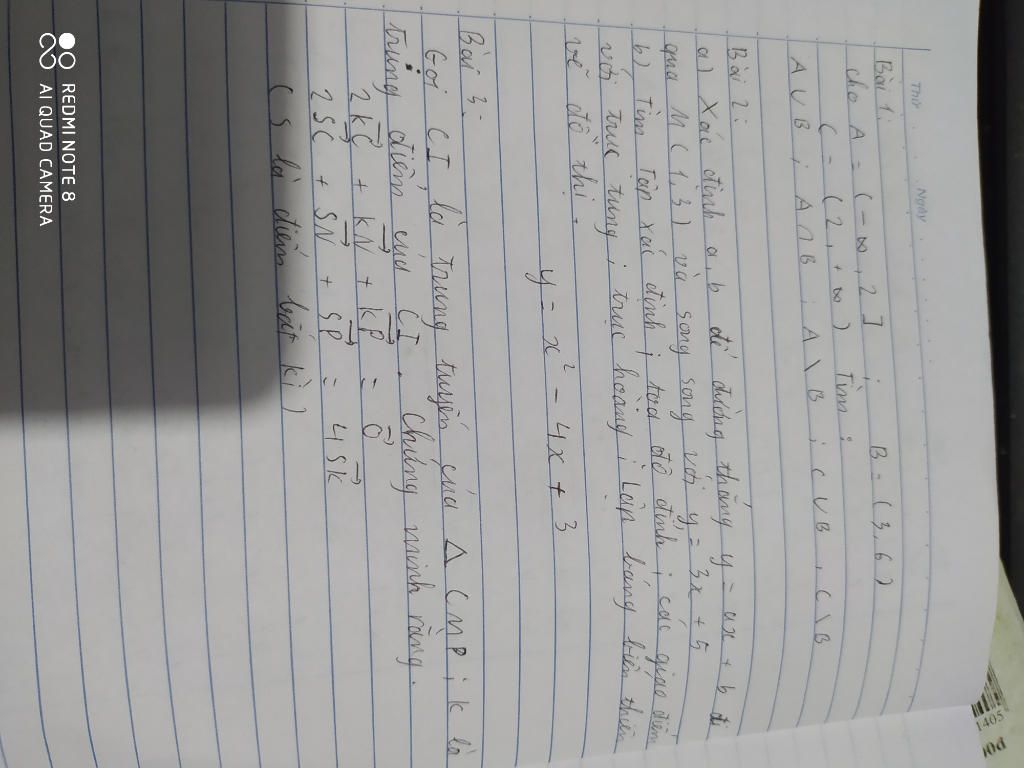 Thứ . . . . . . Ngày . . . . . . . . . .
Bài 1:
Cho A = (-∞, 2] ; B = (3, 6)
C = (2, +∞) Tìm:
A ∪ B ; A ∩ B ; A \ B ; C ∪ B, C \ B
Bài 2:
a) Xác định a, b để đường thẳng y = ax + b đi
qua M(1,3) và song song với y = 3x + 5
b) Tìm Tập xác định; toạ độ đỉnh; các giao điểm
với trục tung; trục hoành; Lập bảng biến thiên
vẽ đồ thị.
y = x² - 4x + 3
Bài 3:
Gọi CI là trung tuyến của Δ CNP; K là
trung điểm của CI. Chứng minh rằng.
2KC⃗ + KN⃗ + KP⃗ = 0⃗
2SC⃗ + SN⃗ + SP⃗ = 4SK⃗
(S là điểm bất kì)
REDMI NOTE 8
AI QUAD CAMERA
1405